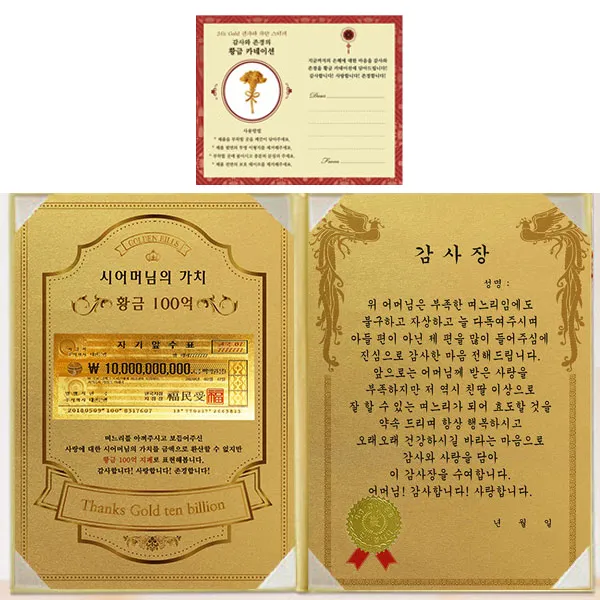 감사와 존경의
황금 카네이션
지금까지의 은혜에 대한 마음을 감사와
존경을 황금 카네이션에 담아드립니다!
감사합니다! 사랑합니다! 존경합니다!
Dear
From
사용방법
GOLDEN BILLS
시어머님의 가치
황금 100억
자기앞수표
₩ 10,000,000,000
福民受
며느리를 아껴주시고 보듬어주신
사랑에 대한 시어머님의 가치를 금액으로 환산할 수 없지만
황금 100억 지폐로 표현해봅니다.
감사합니다! 사랑합니다! 존경합니다!
Thanks Gold ten billion
감 사 장
성명 :
위 어머님은 부족한 며느리임에도
불구하고 자상하고 늘 다독여주시며
아들 편이 아닌 제 편을 많이 들어주심에
진심으로 감사한 마음 전해드립니다.
앞으로는 어머님께 받은 사랑을
부족하지만 저 역시 친딸 이상으로
잘 할 수 있는 며느리가 되어 효도할 것을
약속 드리며 항상 행복하시고
오래오래 건강하시길 바라는 마음으로
감사와 사랑을 담아
이 감사장을 수여합니다.
어머님! 감사합니다! 사랑합니다.
년 월 일